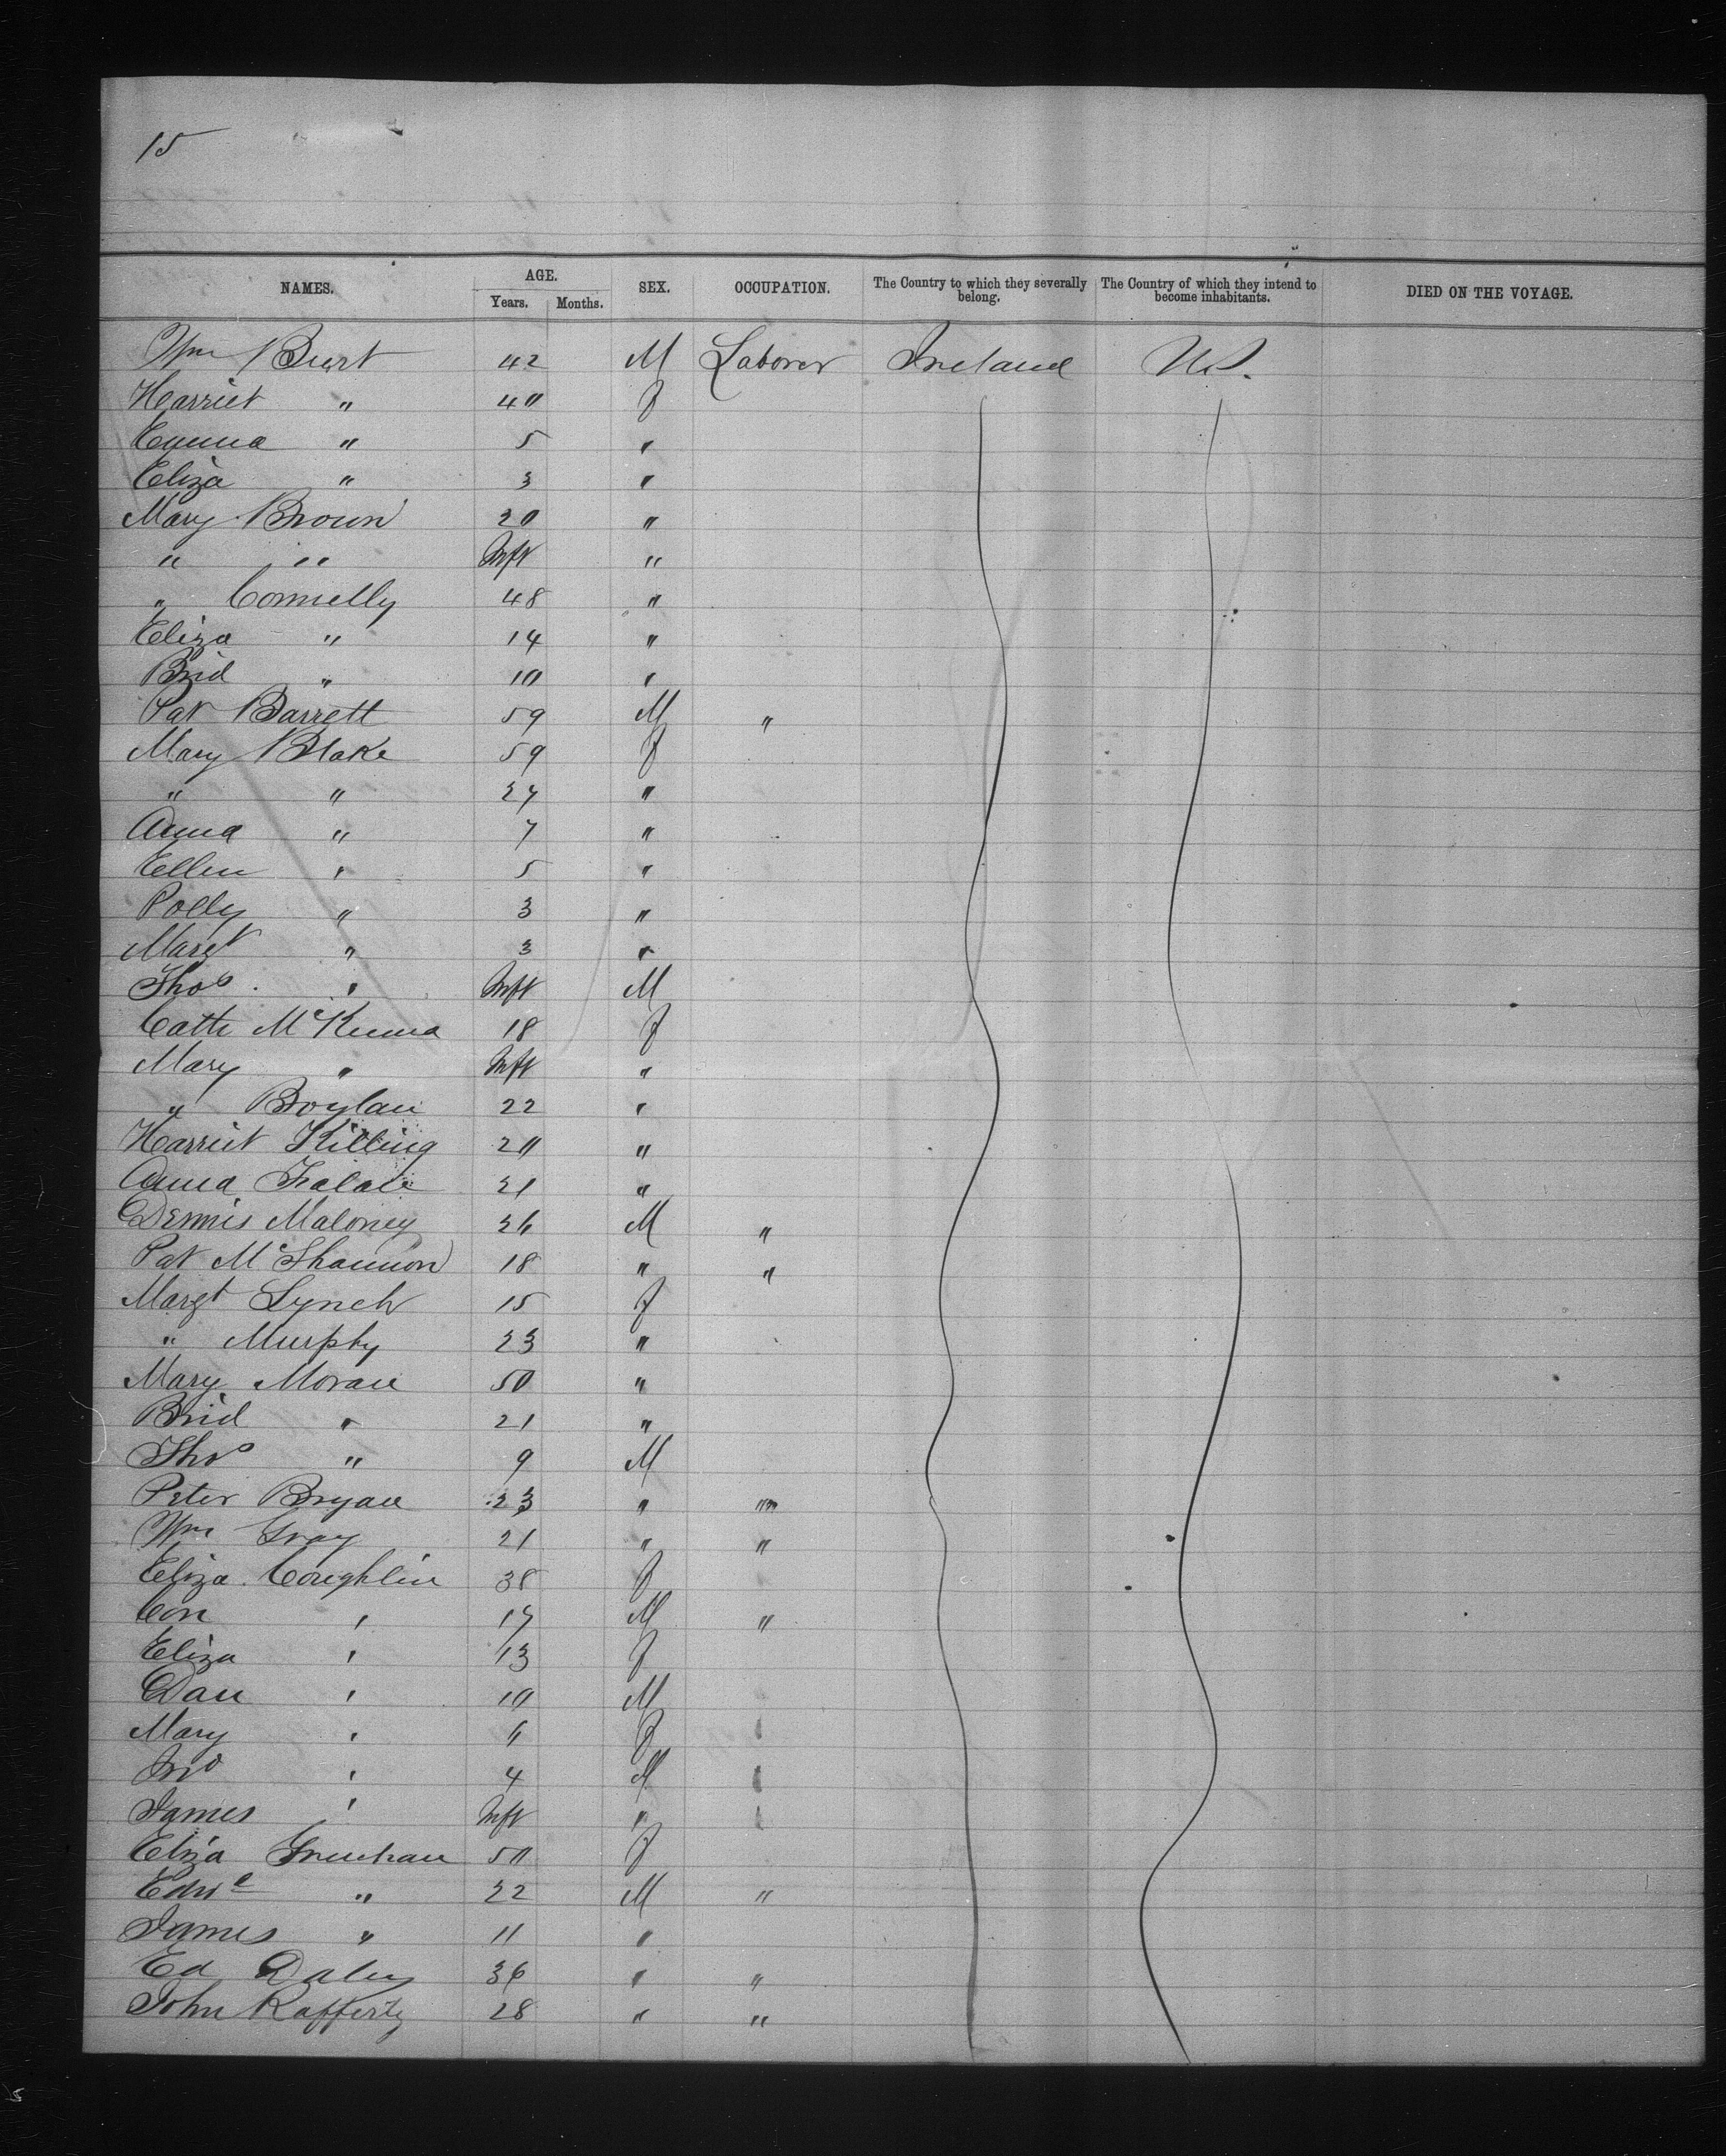 15
NAMES. AGE. Years. Months. SEX. OCCUPATION. The Country to which they severally belong. The Country of which they intend to become inhabitants. DIED ON THE VOYAGE.
Wm Burt 42 M Laborer Ireland U.S.
Harriet " 40 f
Emma " 5 "
Eliza " 3 "
Mary Brown 20 "
" " Inft "
" Connelly 48 "
Eliza " 14 "
Brid " 10 "
Pat Barrett 59 M "
Mary Blake 59 f
" " 27 "
Anna " 7 "
Ellen " 5 "
Polly " 3 "
Margt " 3 "
Thos. " Inft M
Cath McKenna 18 f
Mary " Inft "
" Boylan 22 "
Harriet Killing 20 "
Anna 21 "
Dennis Maloney 26 M "
Pat McShannon 18 " "
Margt Lynch 15 f
" Murphy 23 "
Mary Moran 50 "
Brid " 21 "
Thos " 9 M
Peter Bryan 23 " "
Wm Gray 21 " "
Eliza Coughlin 38 f
Con " 17 M "
Eliza " 13 f
Dan " 10 M
Mary " 6 f
Jno " 4 M
James " Inft "
Eliza 50 f
Edwd " 22 M "
James " 11 "
Ed Daley 36 " "
John Rafferty 28 " "